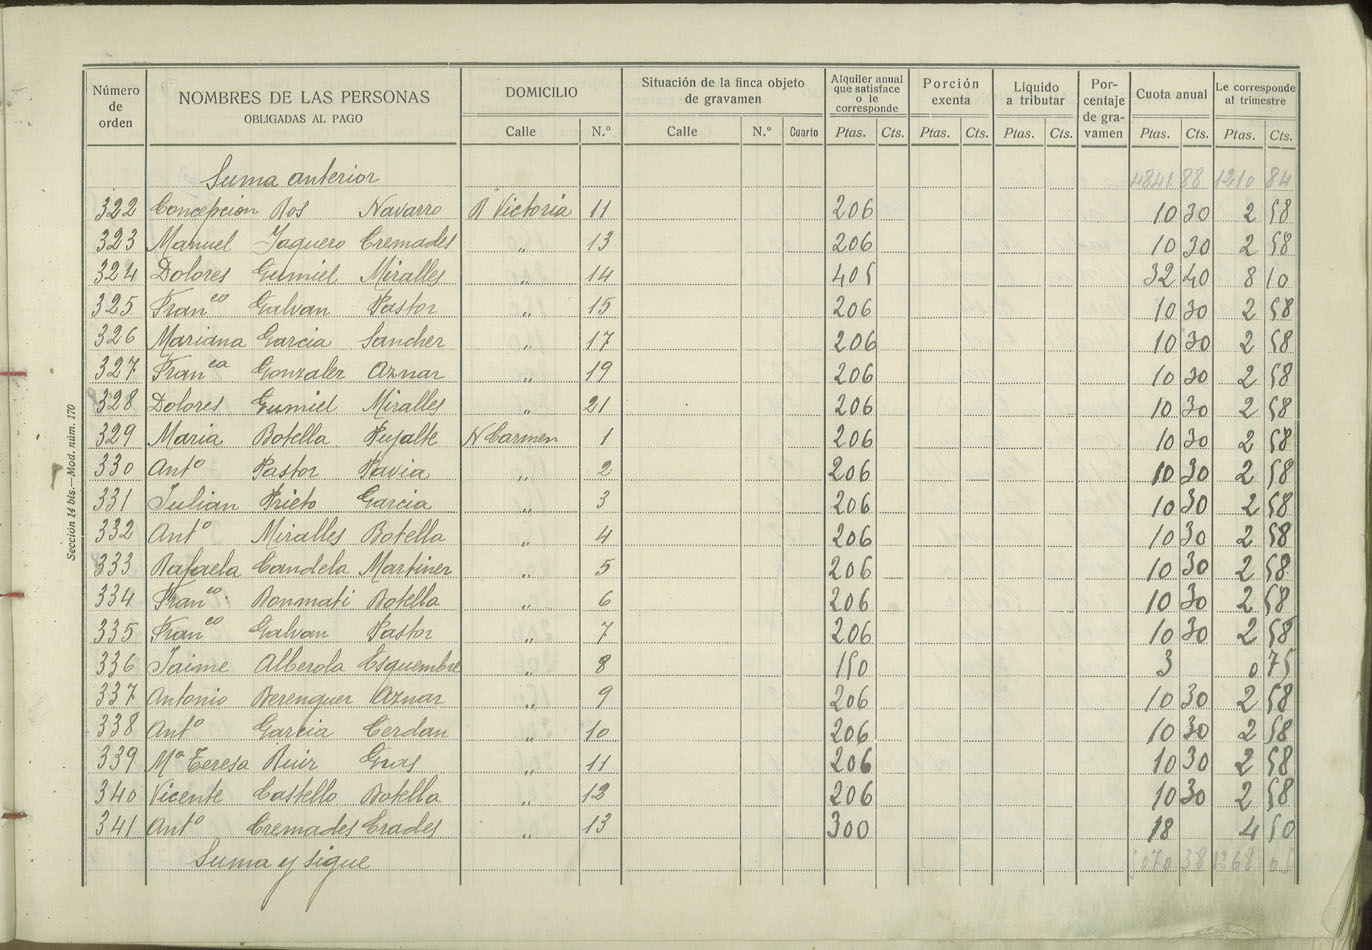 Número de orden | NOMBRES DE LAS PERSONAS OBLIGADAS AL PAGO | DOMICILIO | Situación de la finca objeto de gravamen | Alquiler anual que satisface o le corresponde | Porción exenta | Líquido a tributar | Por-centaje de gra-vamen | Cuota anual | Le corresponde al trimestre
Calle | N.º | Calle | N.º | Cuarto | Ptas. | Cts. | Ptas. | Cts. | Ptas. | Cts. | Ptas. | Cts. | Ptas. | Cts.
Suma anterior 4841 88 1210 84
322 Concepcion Ros Navarro R Victoria 11 206 10 30 2 58
323 Manuel Jaquero Cremades " 13 206 10 30 2 58
324 Dolores Gumiel Miralles " 14 405 32 40 8 10
325 Franco Galvan Pastor " 15 206 10 30 2 58
326 Mariana Garcia Sanchez " 17 206 10 30 2 58
327 Franca Gonzalez Aznar " 19 206 10 30 2 58
328 Dolores Gumiel Miralles " 21 206 10 30 2 58
329 Maria Botella Pujalte N Carmen 1 206 10 30 2 58
330 Anto Pastor Pavia " 2 206 10 30 2 58
331 Julian Prieto Garcia " 3 206 10 30 2 58
332 Anto Miralles Botella " 4 206 10 30 2 58
333 Rafaela Candela Martinez " 5 206 10 30 2 58
334 Franco Bonmati Botella " 6 206 10 30 2 58
335 Franco Galvan Pastor " 7 206 10 30 2 58
336 Jaime Alberola Esquembre " 8 150 3 0 75
337 Antonio Berenguer Aznar " 9 206 10 30 2 58
338 Anto Garcia Cerdan " 10 206 10 30 2 58
339 Mª Teresa Ruiz Gras " 11 206 10 30 2 58
340 Vicente Castello Botella " 12 206 10 30 2 58
341 Anto Cremades Erades " 13 300 18 4 50
Suma y sigue 5070 38 1268 05
Sección 14 bis.—Mod. núm. 170